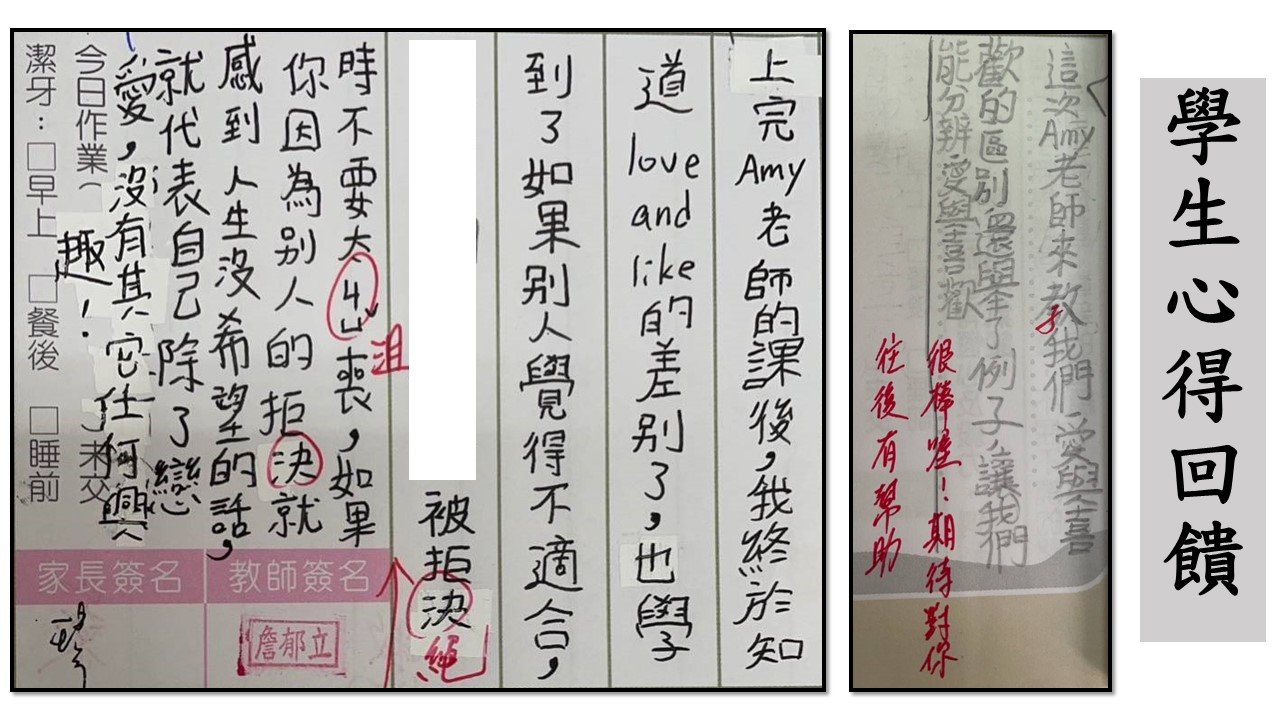 學生心得回饋
這次Amy老師來教我們愛與喜
歡的區別還舉了例子讓我們
能分辨愛與喜歡
很棒喔!期待對你
往後有幫助
上完Amy老師的課後,我終於知
道love and like的差別了,也學
到了如果別人覺得不適合,
被拒決
絕
時不要太ㄐㄩˇ喪,如果
沮
你因為別人的拒決就
感到人生沒希望的話,
就代表自己除了戀
愛,沒有其它任何興
趣!
今日作業(
未交
潔牙:□早上 □餐後 □睡前
教師簽名
家長簽名
詹郁立